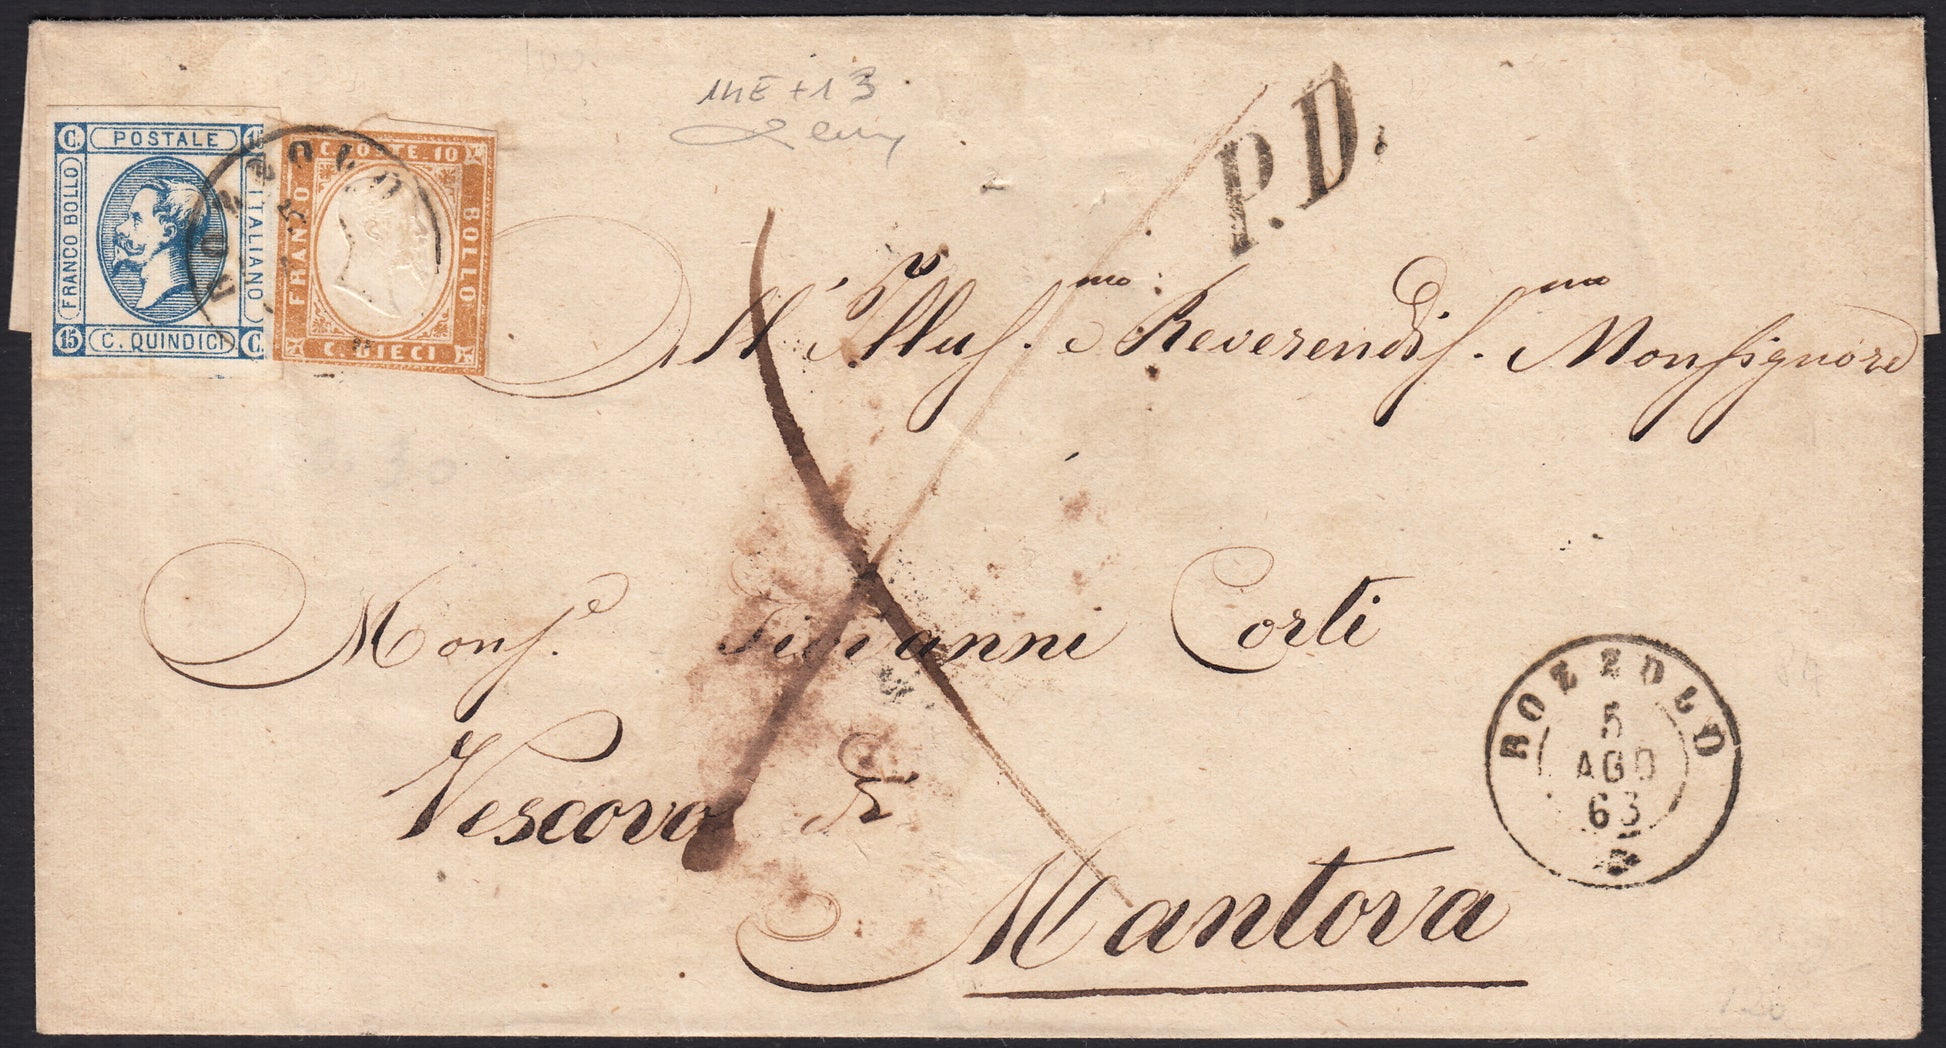 14E + 13
P.D.
C. POSTALE 15
FRANCO BOLLO
ITALIANO
15 C. QUINDICI C.
C. POSTE. 10
FRANCO
BOLLO
C. DIECI
BOZZOLO
5
All' Illus.mo e Reverendis.mo Monsignore
Mons.e Giovanni Corti
Vescovo di
Mantova
BOZZOLO
5
AGO
63